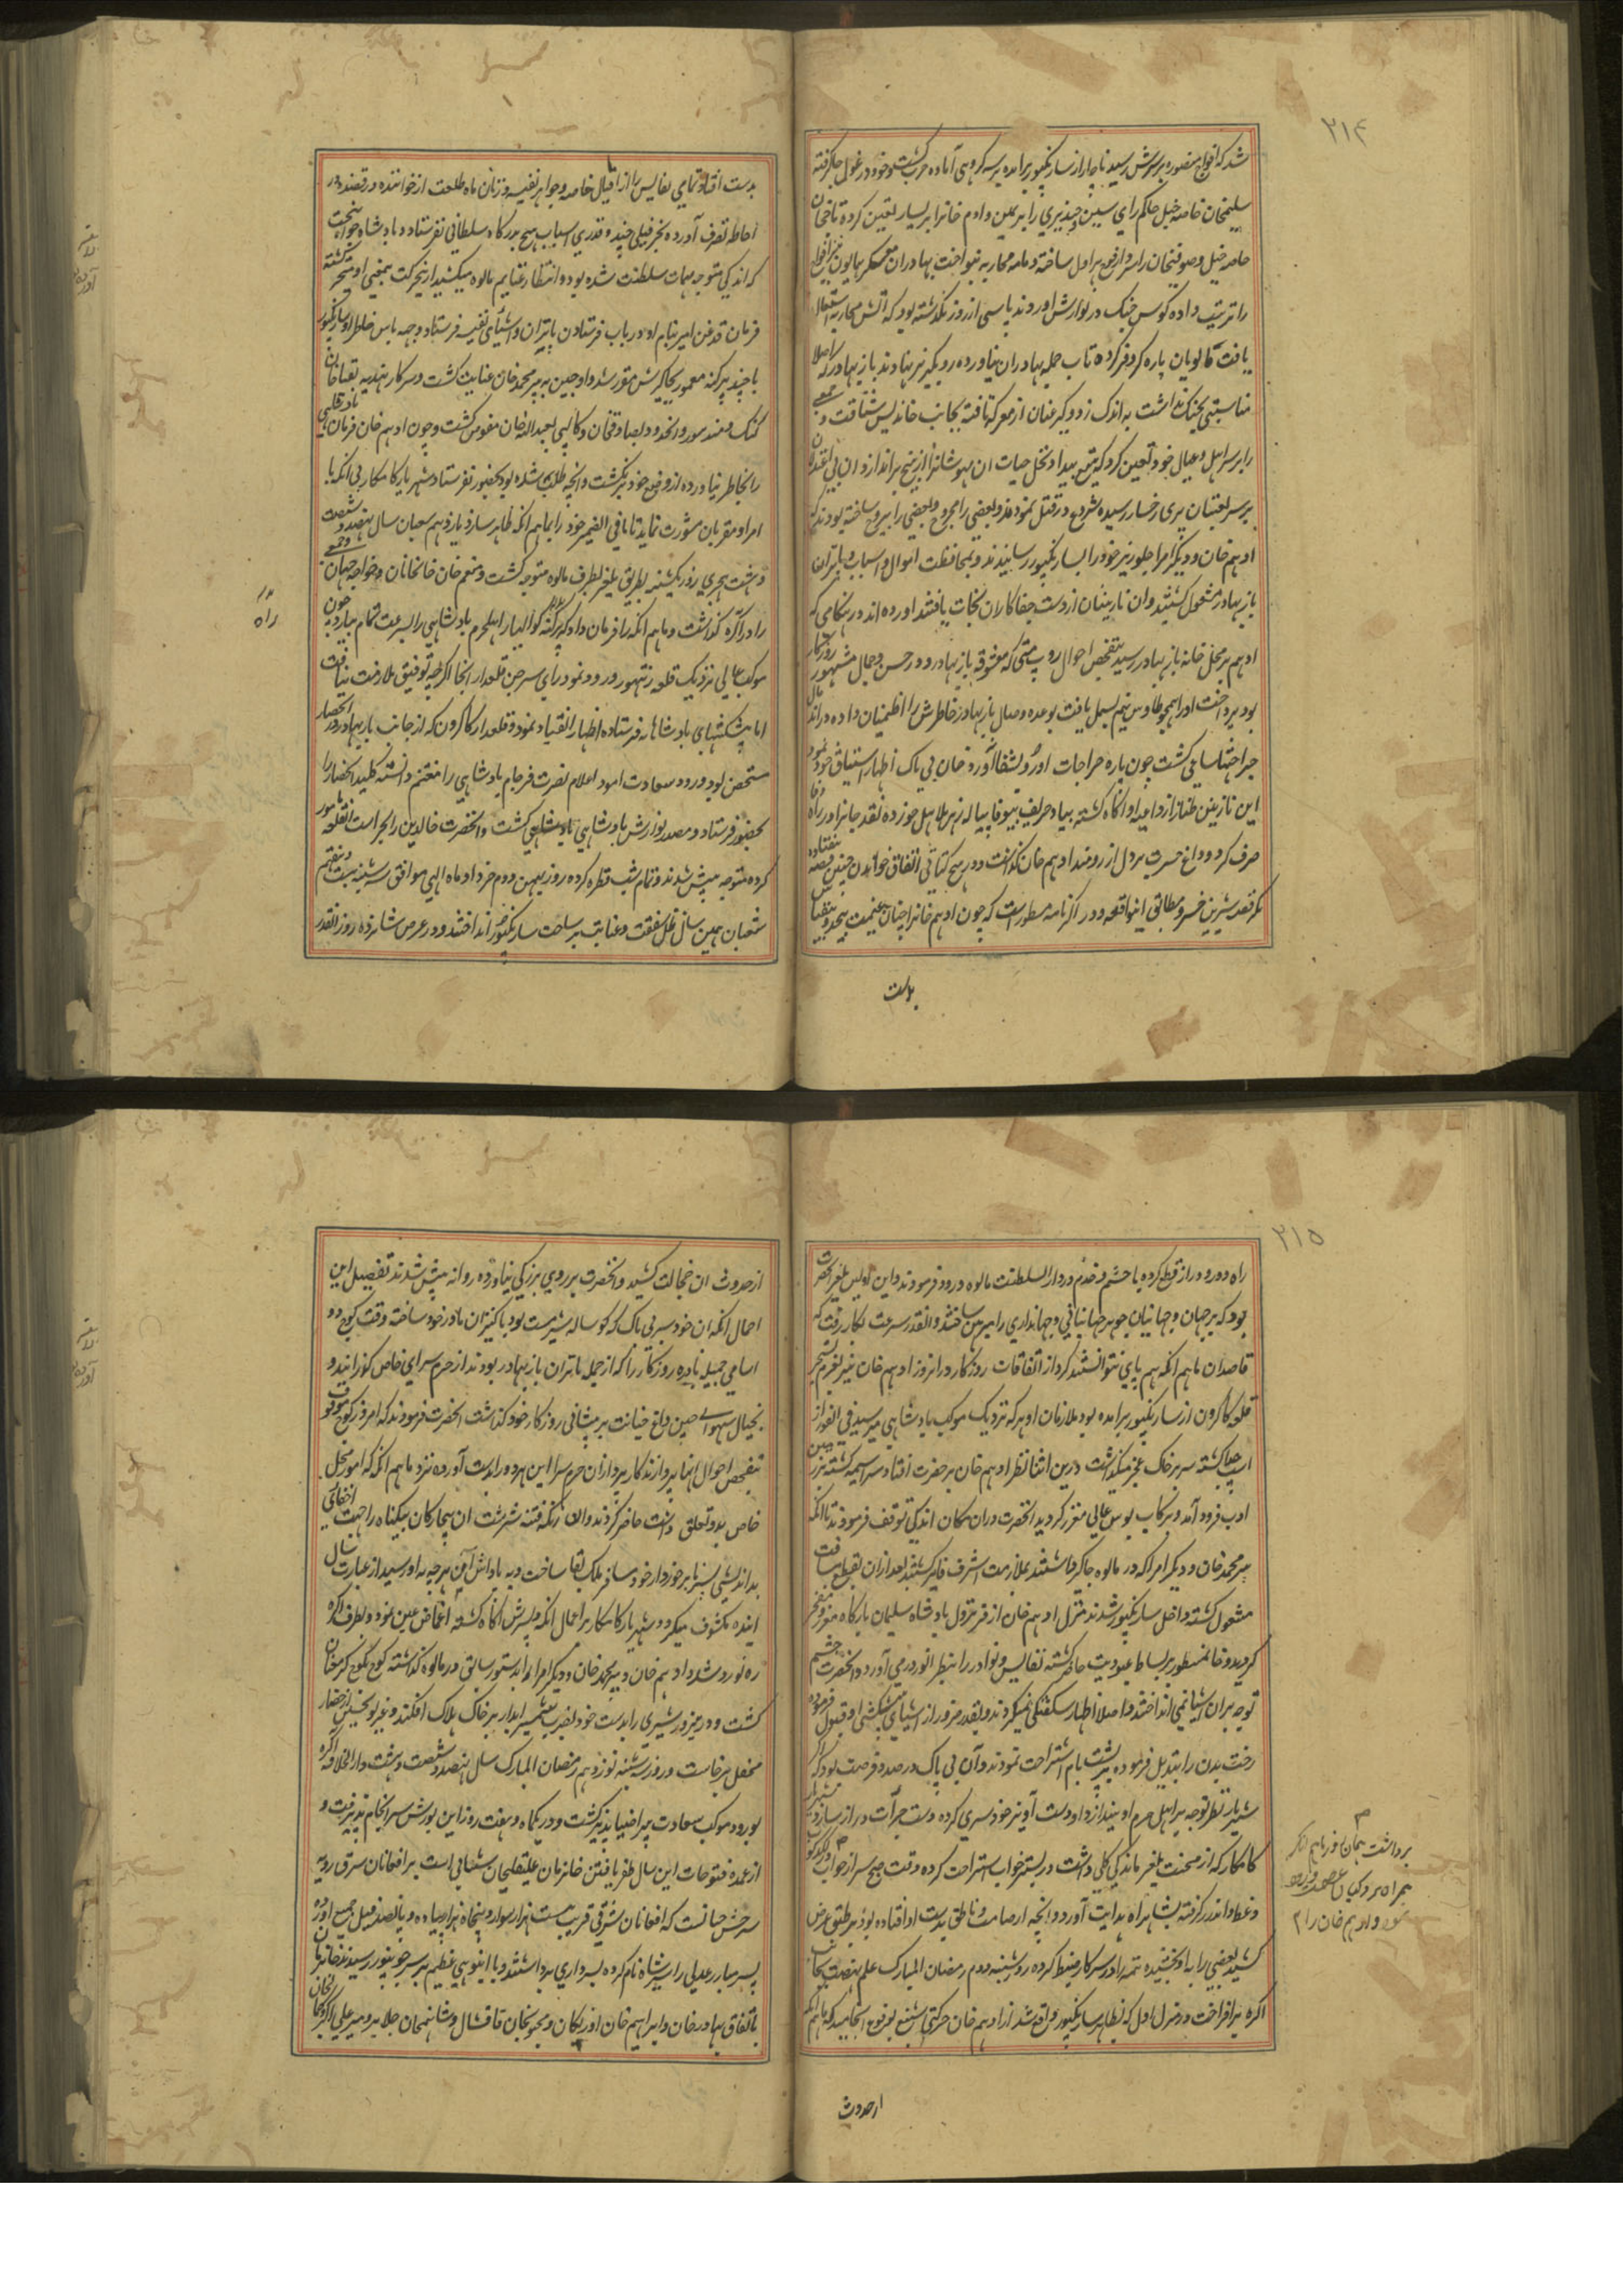 ۲۱۴
شد که افواج منصوره بر سرش رسید ناچار از سارنکپور برامده بر سه کروهی آماده حرب کشت و خود در غول جا کرفته
سلیمخان خاصه خیل حاکم رای سین و چندیری را بر یمین و ادم خانرا بر یسار تعین کرده تاجخان
خاصه خیل و صوفیخان را سردار فوج هراول ساخته دمامه محاربه بنواخت بهادران معسکر همایون نیز افواج
را ترتیب داده کوس جنک در نوازش اوردند پاسی از روز نکذشته بود که آتش محاربه اشتعال
یافت مالویان پاره کر و فر کرده تاب حمله بهادران نیاورده رو بکریز نهادند باز بهادر که اصلا
مناسبتی بجنک نداشت به اندک زد و کیر عنان از معرکه تافته بجانب خاندیس شتافت و جمعی
را بر سر اهل و عیال خود تعین کرد که به تیغ بیداد نخل حیات ان مهوشانرا از بیخ براندازد ان بی اعتدالان
بر سر لعبتان پری رخسار رسیده شروع در قتل نمودند و بعضی را مجروح و بعضی را بیروح ساخته بودند که
ادهم خان و دیکر امرا جلوریز خود را بسارنکپور رسانیدند و بمحافظت اموال و اسباب و پاتران
باز بهادر مشغول کشتند وان نازنینان از دست جفاکاران نجات یافتند اورده اند در هنکامی که
ادهم بر محل خانه باز بهادر رسید بتفحص احوال روپ متی که معشوقه باز بهادر و در حسن و جمال مشهور روزکار
بود پرداخت او را همچو طاوس نیم بسمل یافت بوعده وصال باز بهادر خاطرش را اطمینان داده در اندمال
جراحتها ساعی کشت چون پاره جراحات او رو بشفا آورد خان بی باک اظهار اشتیاق خود نمود
این نازنین طناز از داعیه او اکاه کشته بیاد حریف بیوفا پیاله زهر هلاهل خورده نقد جانرا در راه وفا
صرف کرد و داغ حسرت بر دل ارزومند ادهم خان کذاشت و در هیچ کتابی اتفاق خواندن چنین قصه نیفتاده
مکر قصه شیرین خسرو مطابق اینواقعه و در اکبرنامه مسطور است که چون ادهم خانرا چنان غنیمت بیحد و بیقیاس
بدست
بدست افتاد تمامی نفایس را از افیال خاصه و جواهر نفیسه و زنان ماه طلعت از خواننده و رقصنده در
احاطه تصرف آورده بجز فیلی چند و قدری اسباب هیچ بدرکاه سلطانی نفرستاد و بادشاه جوانبخت
که اندکی متوجه مهمات سلطنت شده بود و انتظار غنایم مالوه میکشید از نحرکت بمعنی او متحیر کشته
فرمان قدغن امیر بنام او در باب فرستادن پاتران و اشیای نفیسه فرستاد و جهه پاس خاطر او سارنکپور
با چند پرکنه معمور بجاکیرش مقرر شد و اوجین به پیر محمد خان عنایت کشت و سرکار هندیه بقیاخان
کنک و مندسور و انحدود بصادقخان و کالپی بعبدالله خان مفوض کشت و چون ادهم خان فرمان قضا
را بخاطر نیاورده از وضع خود برنکشت و انچه طلب شده بود بحضور نفرستاد شهریار کامکار بی انکه با
امرا و مقربان مشورت نماید تا مافی الضمیر خود را با ماهم انکه ظاهر سازد یازدهم شعبان سال نهصد و شصت
و هشت هجری روز یکشنبه بطریق یلغر بطرف مالوه متوجه کشت و منعم خان خانخانان و خواجه جهان و جمعی
را در آکره کذاشت و ماهم انکه را فرمان داد که پرکنه کوالیار اهل حرم بادشاهی را بسرعت تمام بیارد چون
راه
موکب عالی نزدیک قلعه رنتهور ورود نمود رای سرجن قلعدار انجا اکرچه توفیق ملازمت نیافت
اما پیشکشهای بادشاهانه فرستاده اظهار انقیاد نمود و قلعدار کاکرون که از جانب باز بهادر در انحصار
متحصن بود ورود سعادت امود اعلام نصرت فرجام بادشاهی را مغتنم دانسته کلید انحصار را
بحضور فرستاد و مصدر نوازش بادشاهی کشت و انحضرت خالدین را بحراست انقلعه مامور
کرده متوجه پیش شدند و تمام شب قطره کرده روز بهمن دوم خرداد ماه الهی موافق سه شنبه بیست و هفتم
شعبان همین سال ظل شفقت و عنایت بر ساحت سارنکپور انداختند و در عرض شانزده روز انقدر
۲۱۵
راه دور و دراز قطع کرده با حشم و خدم در دارالسلطنت مالوه ورود فرمودند و این اولین یلغر حضرت
بود که بر جهان و جهانیان جوهر جهانبانی و جهانداری را مبرهن ساختند و انقدر سرعت بکار رفت که
قاصدان ماهم انکه هم پای نتوانستند کرد از اتفاقات روزکار در انروز ادهم خان نیز بعزم تسخیر
قلعه کاکرون از سارنکپور برامده بود ملازمان او هر که نزدیک موکب بادشاهی میرسید فی الفور از
اسپ جدا کشته سر بر خاک عجز میکذاشت درین اثنا نظر ادهم خان بر حضرت افتاد سراسیمه کشته بزمین
ادب فرود آمد و برکاب بوس عالی معزز کردید انحضرت دران مکان اندکی توقف فرمودند تا انکه
پیر محمد خان و دیکر امرا که در مالوه جاکیر داشتند بملازمت اشرف فایز کشتند بعد ازان بقطع مسافت
مشغول کشته داخل سارنکپور شدند منزل ادهم خان از فر نزول بادشاه سلیمان بارکاه معزز و مفتخر
کردید و خانمنظور بر بساط عبودیت حاضر کشته نفایس و نوادر را بنظر انور درمی آورد و انحضرت چشم
توجه بران اشیا نمی انداختند و اصلا اظهار شکفتکی نمیکردند و بقدر ضرور از اشیای پیشکشی او قبول فرموده
رخت بدن را تبدیل فرموده بر پشت بام استراحت نمودند و آن بی باک در صدد فرصت بود که اکر
شهریار نظر توجه بر اهل حرم او بیندازد او دست آویز خود سری کرده دست جرآت دراز سازد شهریار
کامکار که از محنت یلغر ماندکی کلی داشت در بستر خواب استراحت کرده وقت صبح سر از خواب
برداشت همان روز ماهم انکه
همراه مردکیان عصمت وارد
نمود و ادهم خان را
و غطا و اندرز کرفته بشاهراه هدایت آورد و انچه از صامت و ناطق بدست او افتاده بود بر طبق عرض
کشید بعضی را به او بخشیده تتمه را در سرکار ضبط کرده روز شنبه دوم رمضان المبارک علم نهضت بجانب
اکره برافراخت در منزل اول که بظاهر سارنکپور واقع شد از ادهم خان حرکتی شنیع بوقوع انجامید که ماهم انکه
از حدوث
از حدوث ان خجالت کشید و انحضرت بر روی بزرکی نیاورده روانه پیش شدند تفصیل این
اجمال انکه ان خود سر بی باک که کوساله شیرمست بود با کنیزان مادر خود ساخته وقت کوچ دو
اسامی جمیله نادره روزکار را که از جمله پاتران باز بهادر بودند از حرم سرای خاص کذرانید و
بخیال سهوا حین داغ خیانت بر پیشانی روزکار خود کذاشت انحضرت فرمودند که امروز کوچ موقوف
بتفحص احوال انها پردازند کارپردازان حرم سرا این هردو را بدست آورده نزد ماهم انکه که امور محل
خاص بدو تعلق داشت حاضر کردند و ان زنکه فتنه سرشت ان بیچارکان بیکناه را جهت اخفای
بداندیشی پسر نابرخوردار خود مسافر ملک بقا ساخت و به پاداش آن هرچه به او رسید از عبارت سال
اینده مکشوف میکردد شهریار کامکار بر اعمال انکه و پسرش اکاه کشته اغماض عین نمود و بطرف اکره
ره نورد شد و ادهم خان و پیر محمد خان و دیکر امرا را بدستور سابق در مالوه کذاشته کوچ بکوچ کرم عنان
کشت و در عین ره شیری را بدست خود بضرب شمشیر ابدار بر خاک هلاک افکند و غریو تحسین از حضار
محفل برخاست و روز سه شنبه نوزدهم رمضان المبارک سال نهصد و شصت و هشت دارالخلافه اکره
بورود موکب سعادت پیرا ضیا پذیر کشت و در یکماه و هفت روز این یورش سرانجام پذیرفت و
از عمده فتوحات این سال ظفر یافتن خانزمان علیقلیخان شیبانی است بر افغانان شرق رویه
سرخش چنانست که افغانان شرقی قریب بیست هزار سوار و پنجاه هزار پیاده و پانصد فیل جمع اورده
پسر مبارز عدلی را شیر شاه نام کرده بسرداری برداشتند و با اینوه عظیم بر سر جونپور رسیدند خانزمان
باتفاق بهادر خان و ابراهیم خان اوزبکان و مجنون خان قاقشال و شاهمخان جلایر و میر علی اکبر